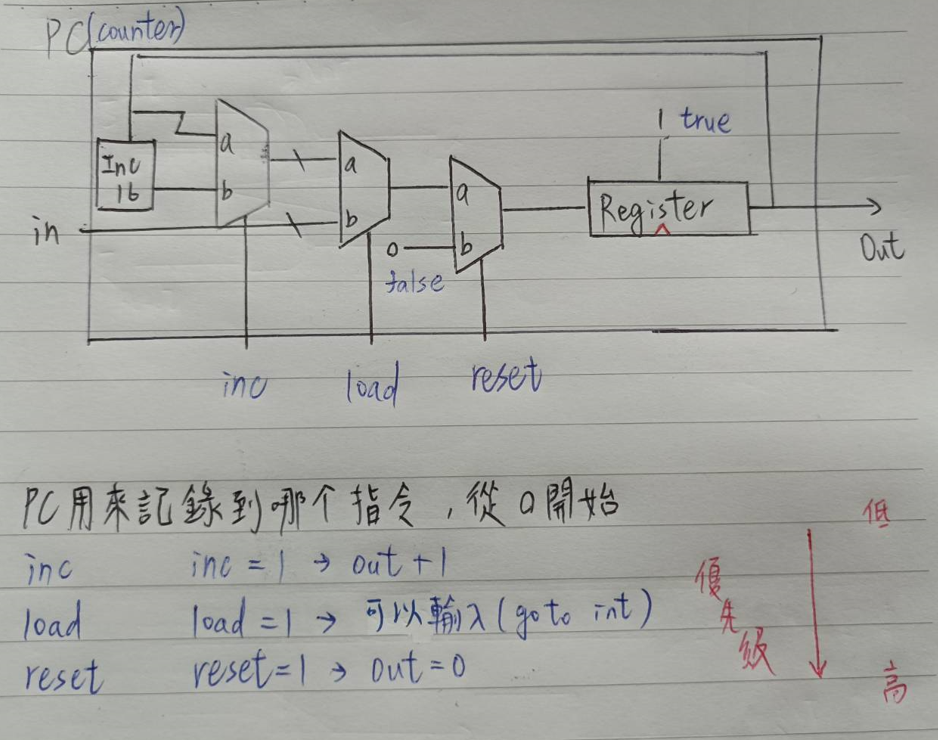 PC(counter)
1 true
a
Inc
16
b
a
b
a
b
in
0
false
Register
Out
inc
load
reset
PC用來記錄到哪个指令,從0開始
低
inc inc = 1 → out + 1
優先級
load load = 1 → 可以輸入(goto int)
reset reset=1 → out = 0
高